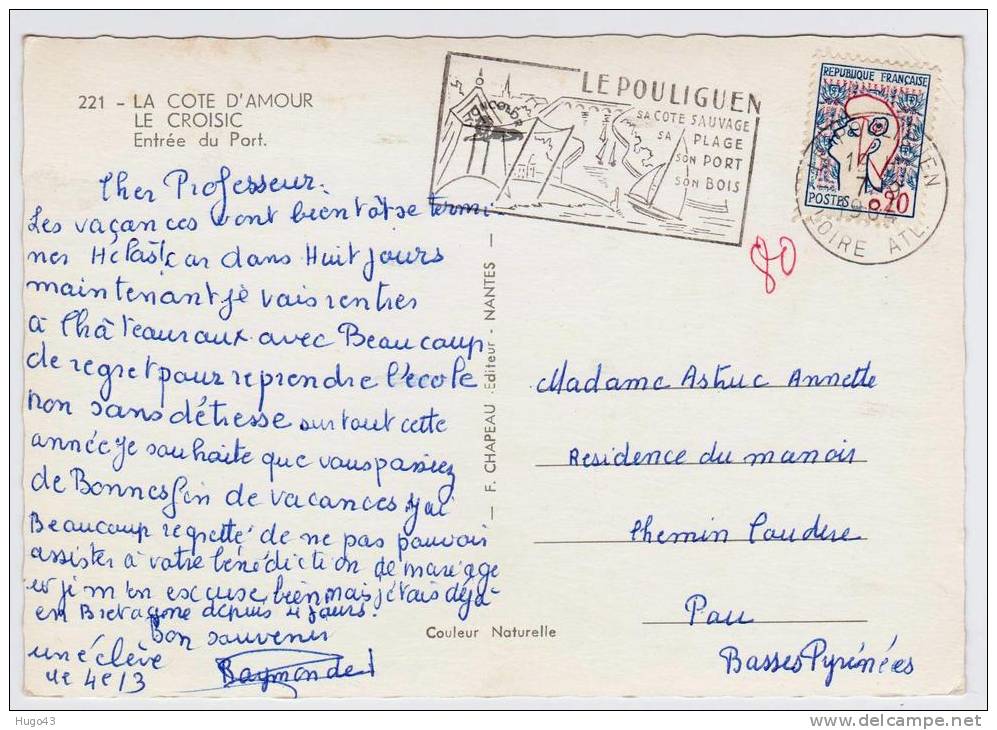 221 - LA COTE D'AMOUR
LE CROISIC
Entrée du Port.
LE POULIGUEN
SA COTE SAUVAGE
SA PLAGE
SON PORT
SON BOIS
REPUBLIQUE FRANÇAISE
POSTES 0,20
LOIRE ATL.
80
Cher Professeur.
Les vacances vont bientôt se termi-
ner Hélas! car dans Huit jours
maintenant je vais rentrer
à Châteauroux avec Beaucoup
de regret pour reprendre l'école
non sans détresse surtout cette
année je souhaite que vous passiez
de Bonnes fin de vacances j'ai
Beaucoup regretté de ne pas pouvoir
assister à votre bénédiction de mariage
et je m'en excuse bien mais j'étais déjà
en Bretagne depuis 4 jours.
Bon souvenir
une élève
4e/3
Raymonde
— F. CHAPEAU Editeur - NANTES —
Couleur Naturelle
Madame Astruc Annette
Residence du manoir
Chemin
Pau
Basses Pyrénées
Hugo43
http://www.delcampe.net